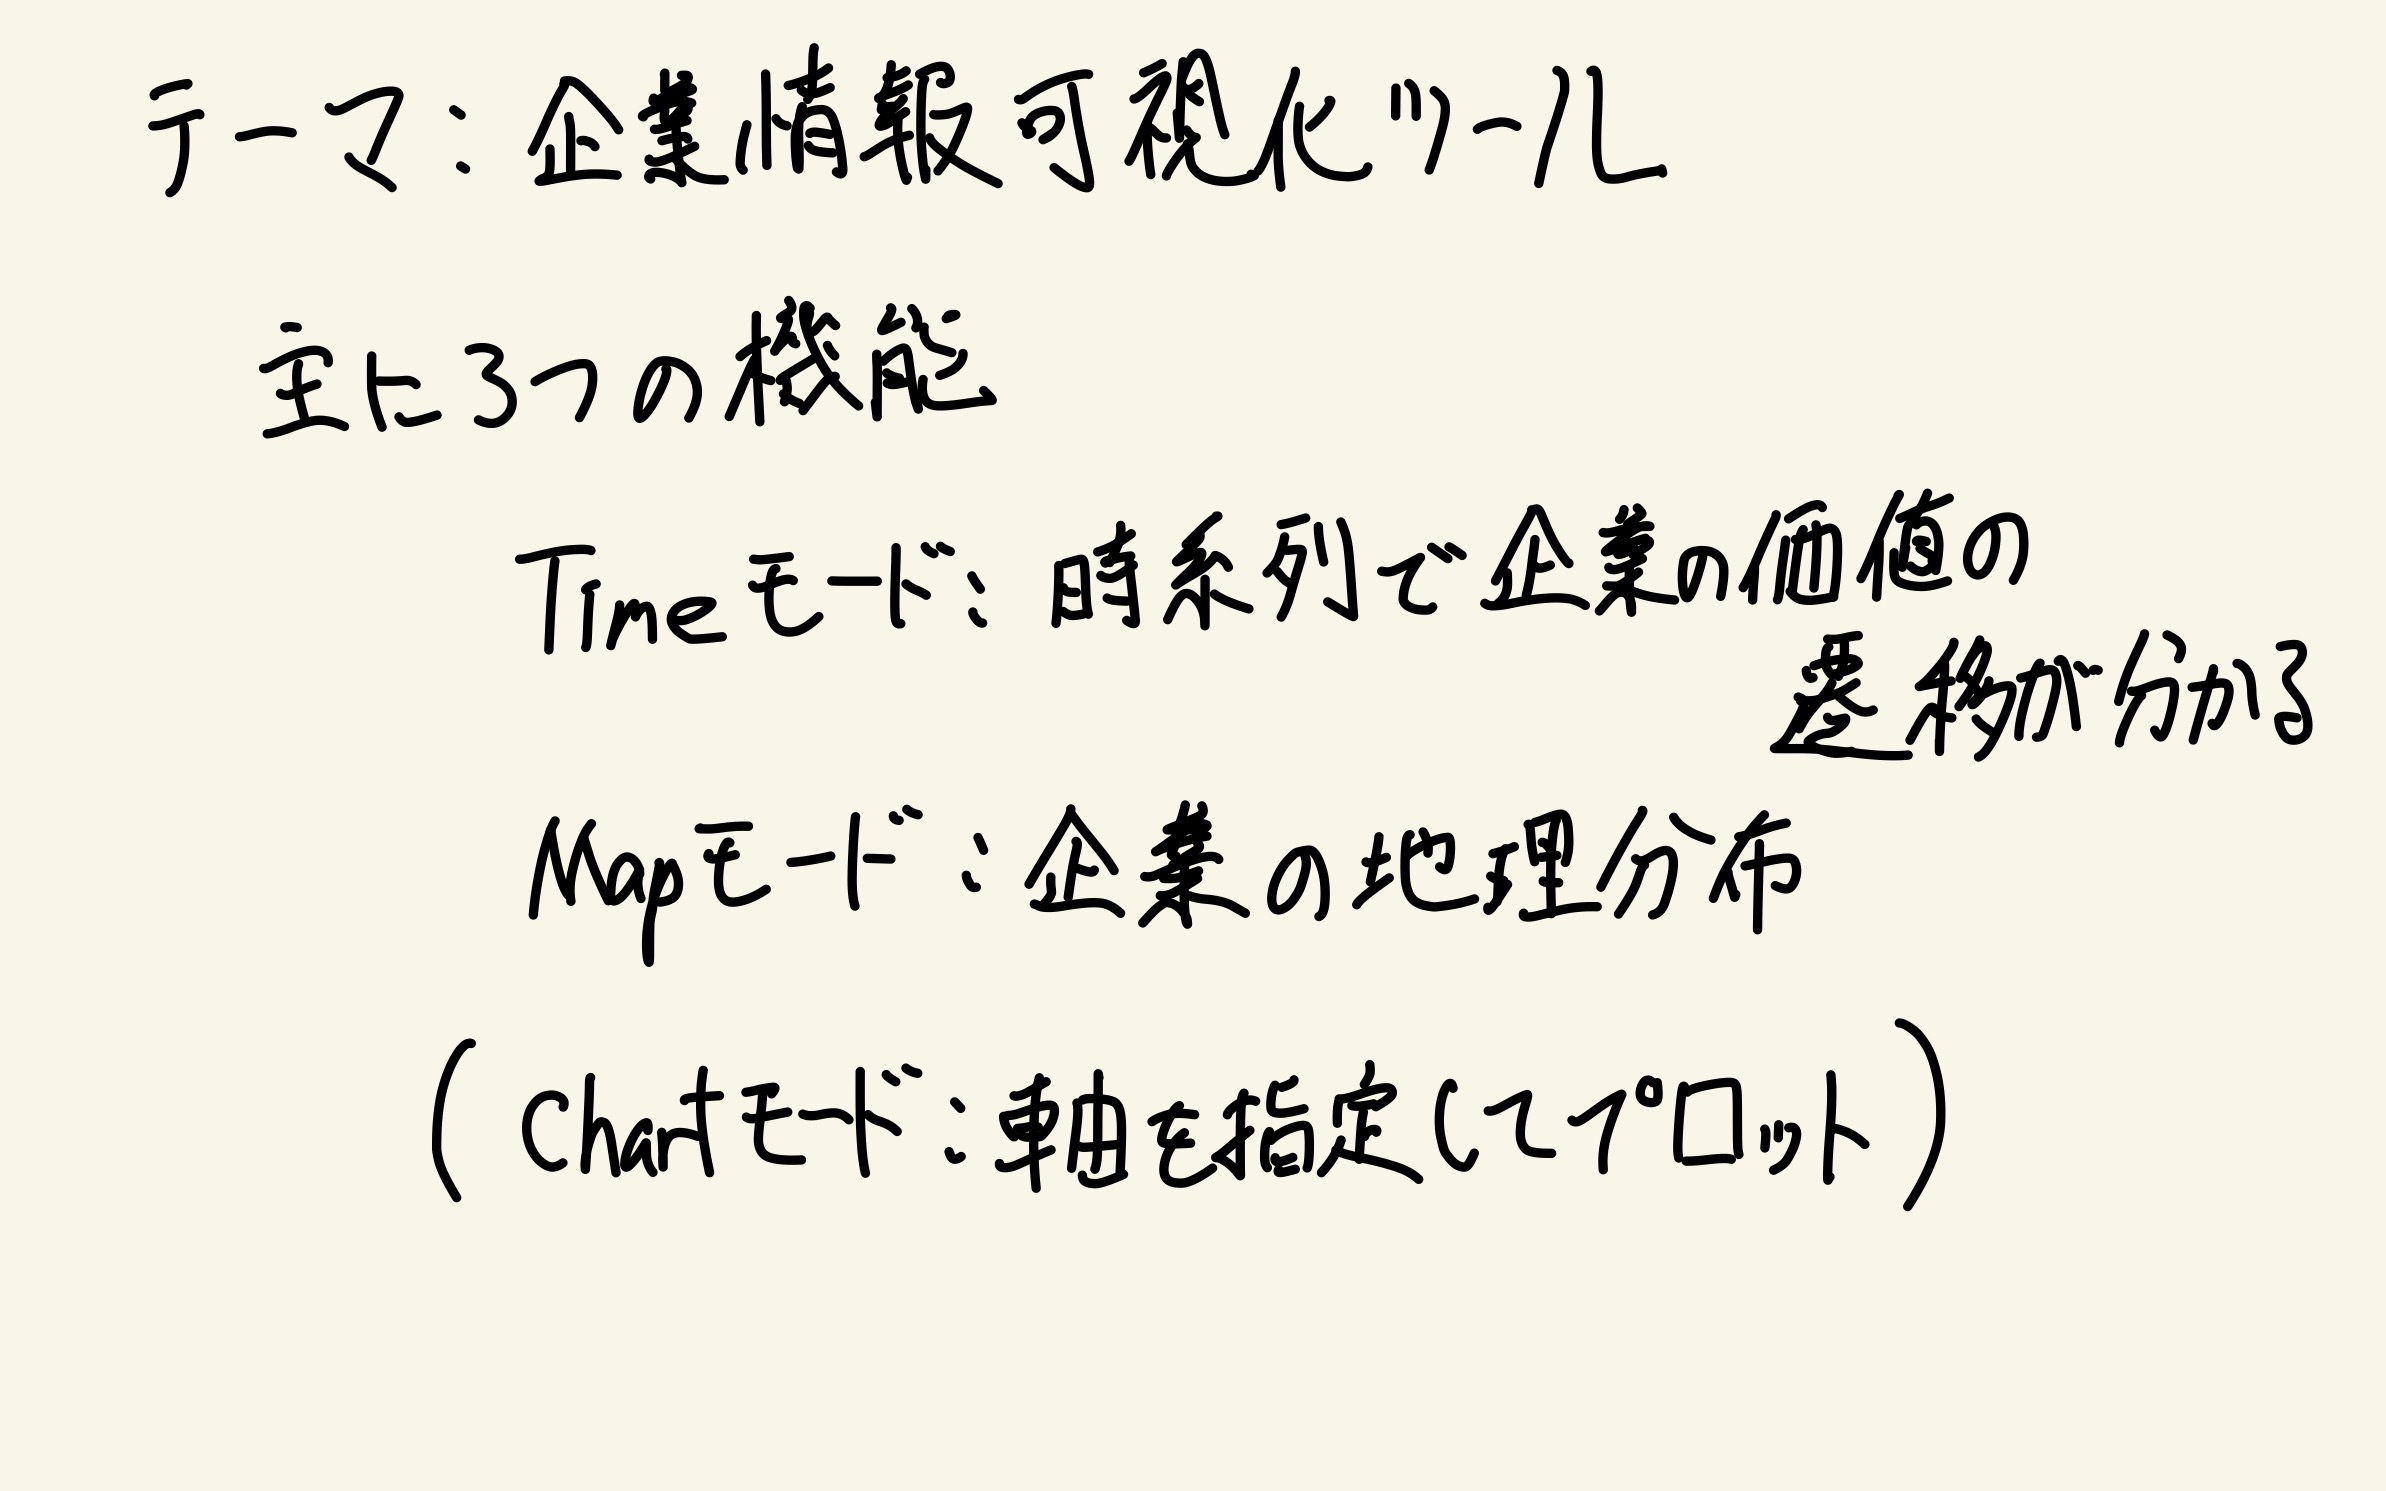 テーマ：企業情報可視化ツール
主に3つの機能
Timeモード：時系列で企業の価値の
遷移が分かる
Mapモード：企業の地理分布
（Chartモード：軸を指定してプロット）